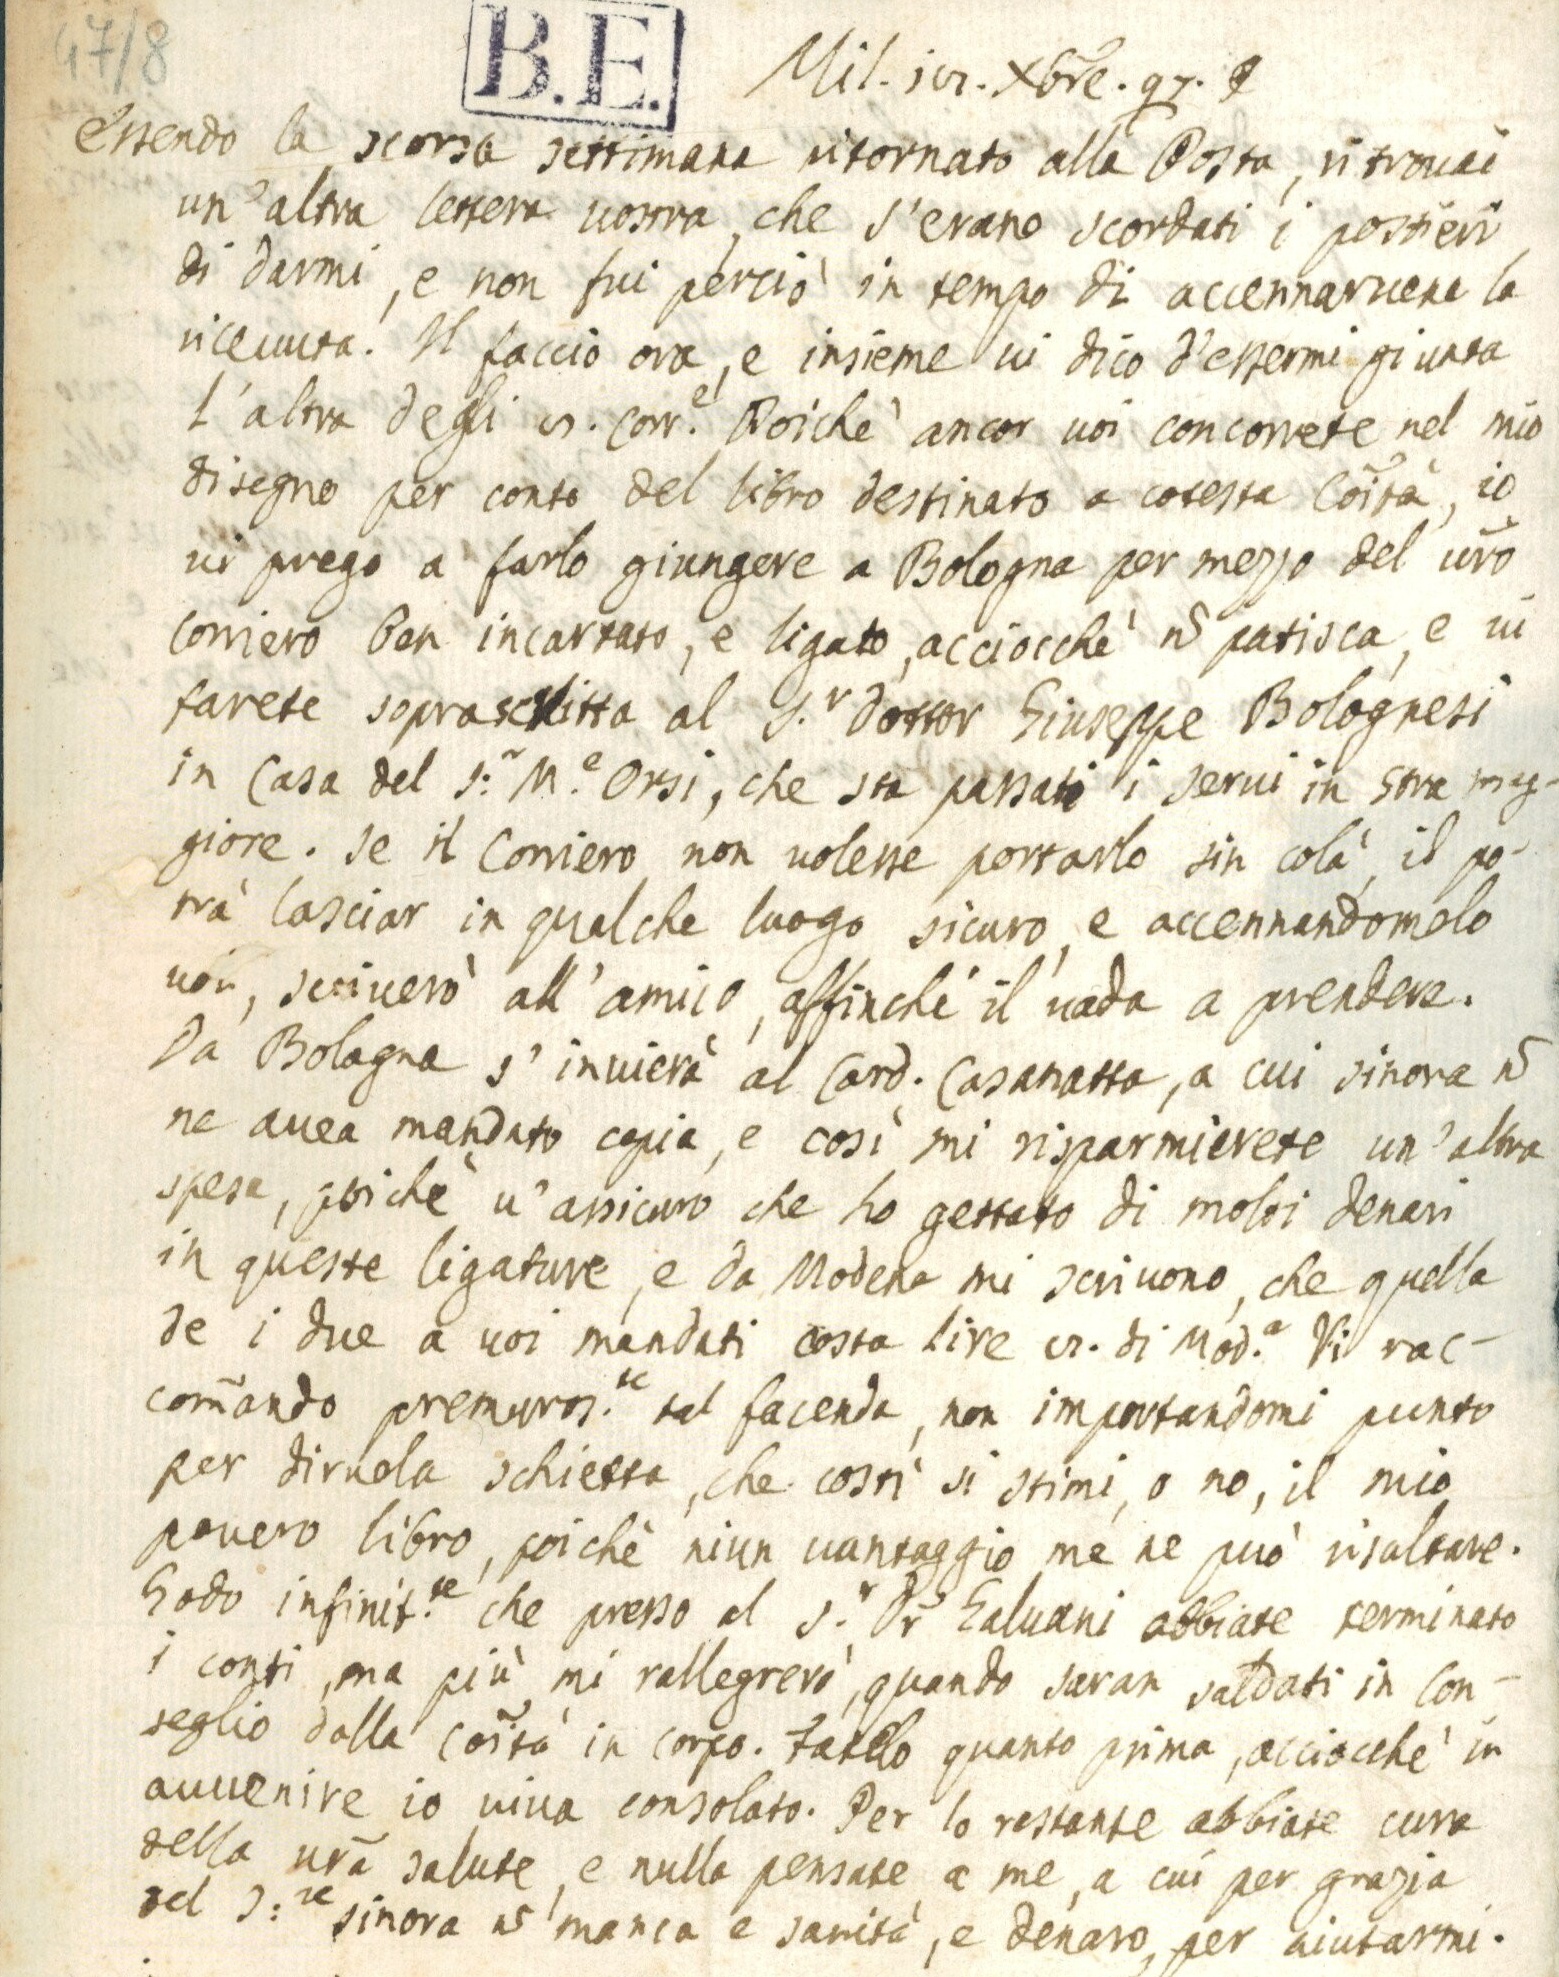 47/8
B.E.
Mil. Xbre. 97.
Essendo la scorsa settimana ritornato alla Posta, ritrovai
un'altra lettera vostra, che s'erano scordati i postieri
di darmi, e non fui perciò in tempo di accennarvene la
ricevuta. Il faccio ora, e insieme vi dico d'essermi giunta
l'altra degli corr.e Poichè ancor voi concorrete nel mio
disegno per conto del libro destinato a cotesta Cõità, io
vi prego a farlo giungere a Bologna per mezzo del vrõ
Corriero ben incartato, e ligato, acciocchè nõ patisca, e vi
farete soprascritta al S.r Dottor Giuseppe Bolognesi
in Casa del S.r M.e Orsi, che sta passati i Servi in Stra mag-
giore. Se il Corriero non volesse portarlo sin colà, il po-
trà lasciar in qualche luogo sicuro, e accennandomelo
voi, scriverò all'amico, affinchè il vada a prendere.
Da Bologna s'invierà al Card. Casanatta, a cui sinora nõ
ne avea mandato copia, e così mi risparmierete un'altra
spesa, poichè v'assicuro che ho gettato di molti denari
in queste ligature, e da Modena mi scrivono, che quella
de i due a voi mandati costa lire di Mod.a Vi rac-
comãndo premuros.te tal facenda, non importandomi punto
per dirvela schietta, che costì si stimi, o no, il mio
povero libro, poichè niun vantaggio me ne può risultare.
Godo infinit.te che presso al S.r Dr Galvani abbiate terminato
i conti, ma più mi rallegrerò, quando saran saldati in Con-
seglio dalla Cõità in corpo. Fatelo quanto prima, acciocchè in
avvenire io viva consolato. Per lo restante abbiate cura
della vrã salute, e nulla pensate a me, a cui per grazia
del S:re sinora nõ manca e sanità, e denaro, per aiutarmi.